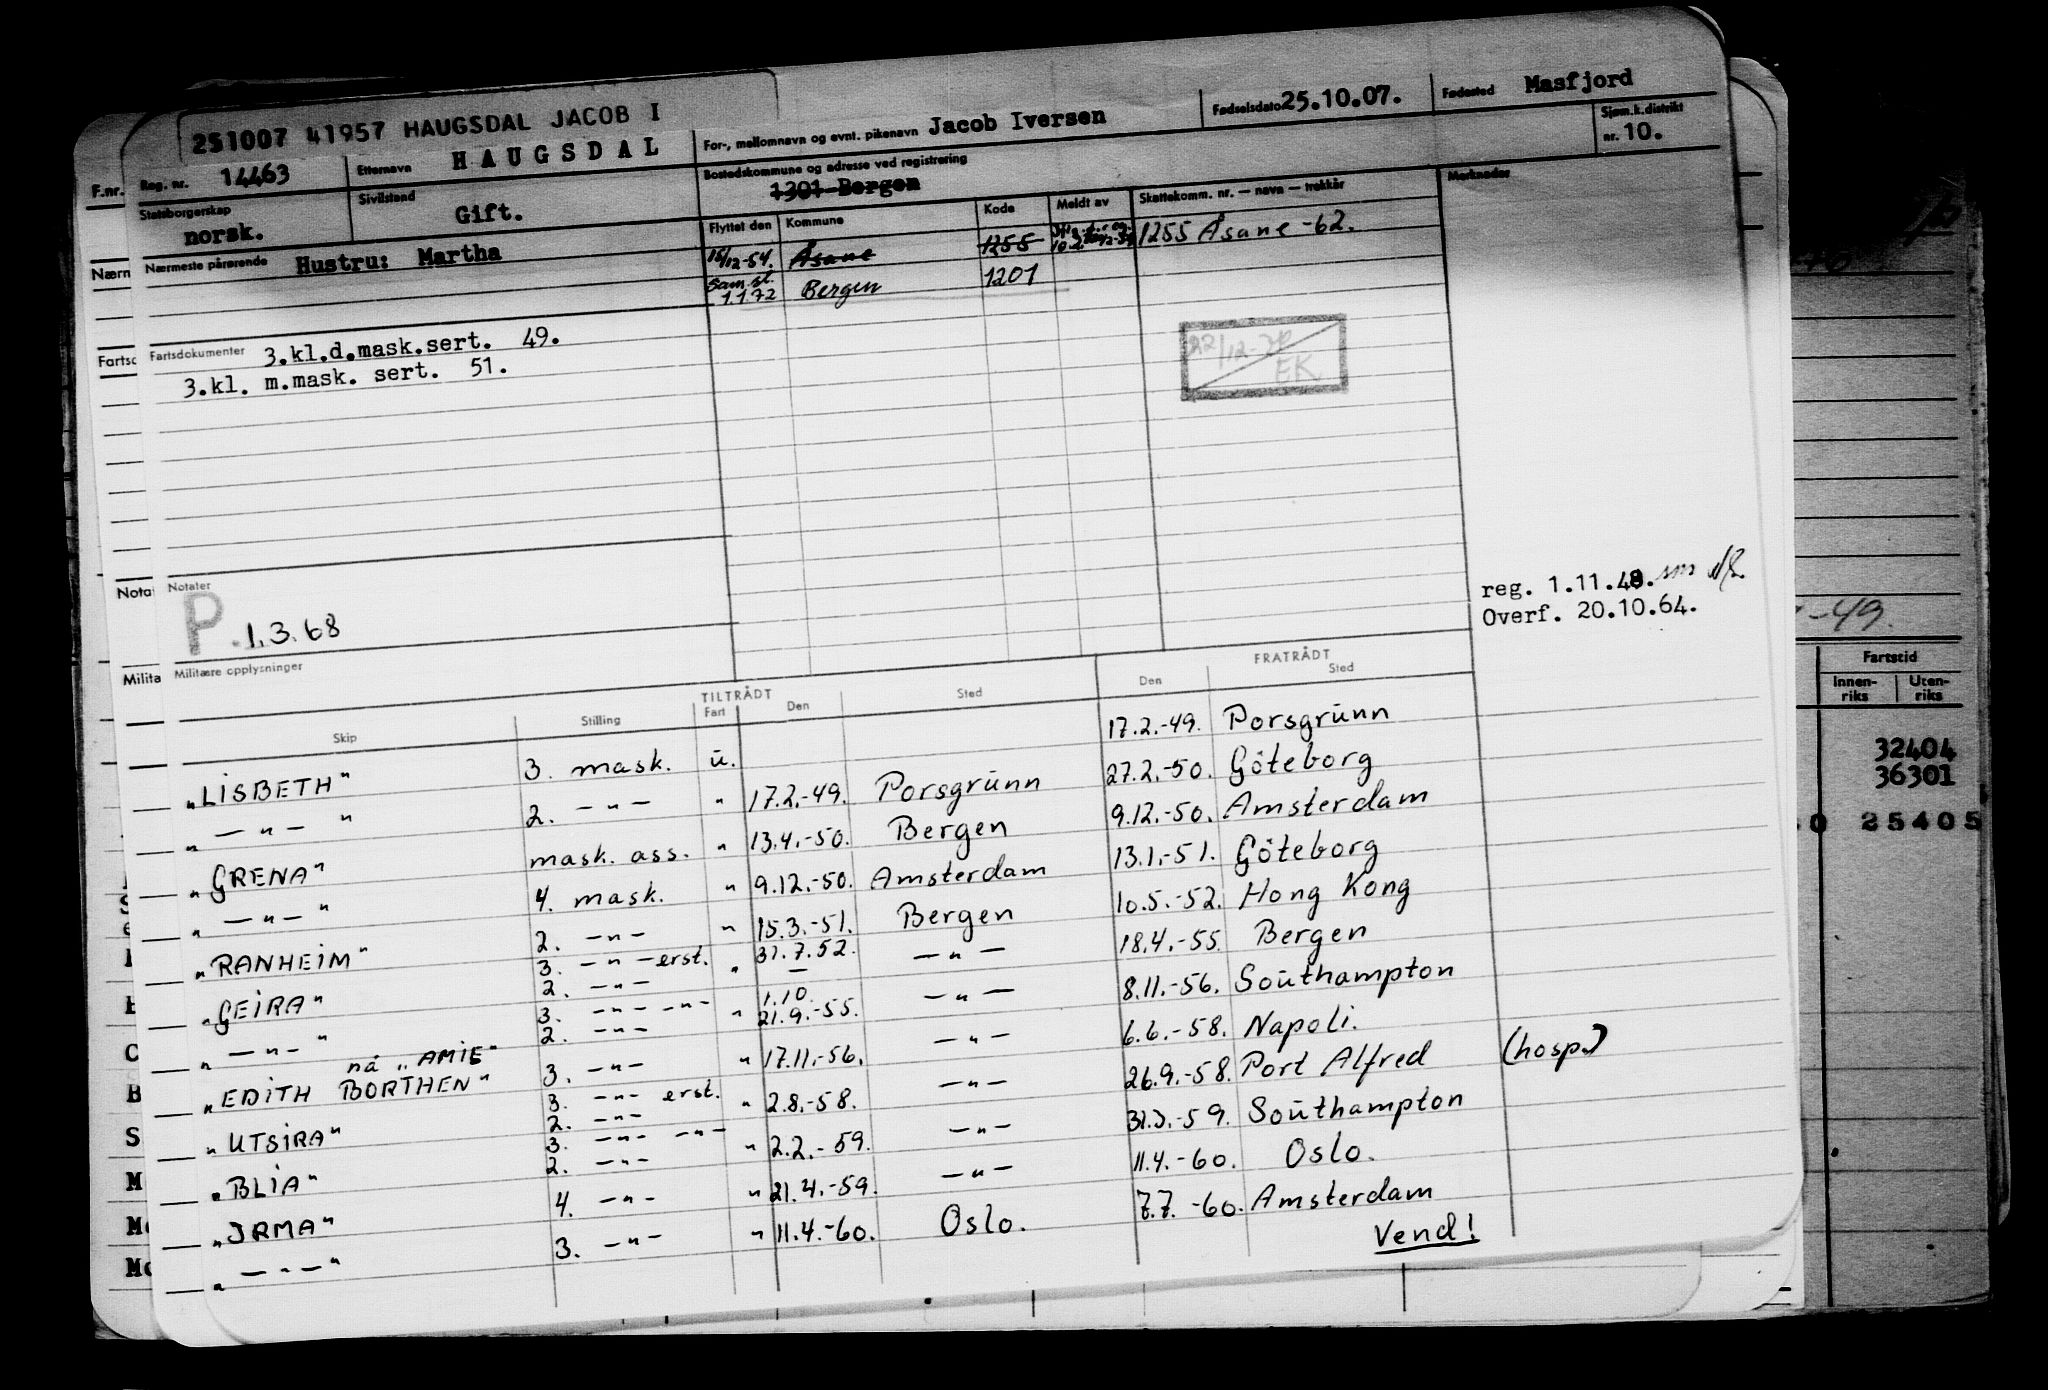 251007 41957 HAUGSDAL JACOB I
Reg. nr. 14463 Etternavn HAUGSDAL For-, mellomnavn og evnt. pikenavn Jacob Iversen Fødselsdato 25.10.07. Fødested Masfjord
Statsborgerskap norsk. Sivilstand Gift. Bostedskommune og adresse ved registrering 1301 Bergen Sjøm.k.distrikt nr. 10.
Nærmeste pårørende Hustru: Martha
Flyttet den Kommune Kode Meldt av Skattekomm. nr. — navn — trekkår Merknader
15/12-54. Åsane 1255 1255 Åsane -62.
Sam.sl. 1.1.72 Bergen 1201
Fartsdokumenter 3.kl.d.mask.sert. 49.
3.kl. m.mask. sert. 51.
22/12-70 EK
Notater
P. 1.3.68
reg. 1.11.48.
Overf. 20.10.64.
Militære opplysninger
TILTRÅDT FRATRÅDT
Skip Stilling Fart Den Sted Den Sted
"LISBETH" 3. mask. u. 17.2.-49. Porsgrunn
" — " — " 2. — " — " 17.2.-49. Porsgrunn 27.2.-50. Göteborg
"GRENA" mask. ass. " 13.4.-50. Bergen 9.12.-50. Amsterdam
" — " — " 4. mask. " 9.12.-50. Amsterdam 13.1.-51. Göteborg
"RANHEIM" 2. — " — " 15.3.-51. Bergen 10.5.-52. Hong Kong
"GEIRA" 3. — " — erst. 2. — " — " 31.7.52. — — " — 18.4.-55. Bergen
" — " — " 3. — " — — " — 2. — " — " 1.10. 21.9.-55. — " — 8.11.-56. Southampton
nå "AMIE"
"EDITH BORTHEN" 3. — " — " 17.11.-56. — " — 6.6.-58. Napoli.
"UTSIRA" 3. — " — erst. 2. — " — " 2.8.-58. — " — 26.9.-58. Port Alfred (hosp.)
"BLIA" 3. — " — — " — 2. — " — " 2.2.-59. — " — 31.3.-59. Southampton
"IRMA" 4. — " — " 21.4.-59. — " — 11.4.-60. Oslo.
" — " — " 3. — " — " 11.4.-60. Oslo. 7.7.-60. Amsterdam
Vend!
F.nr.
Nærn
Fartsd
Notat
Milita
-49.
Fartstid
Innen-riks Uten-riks
32404
36301
0 25405